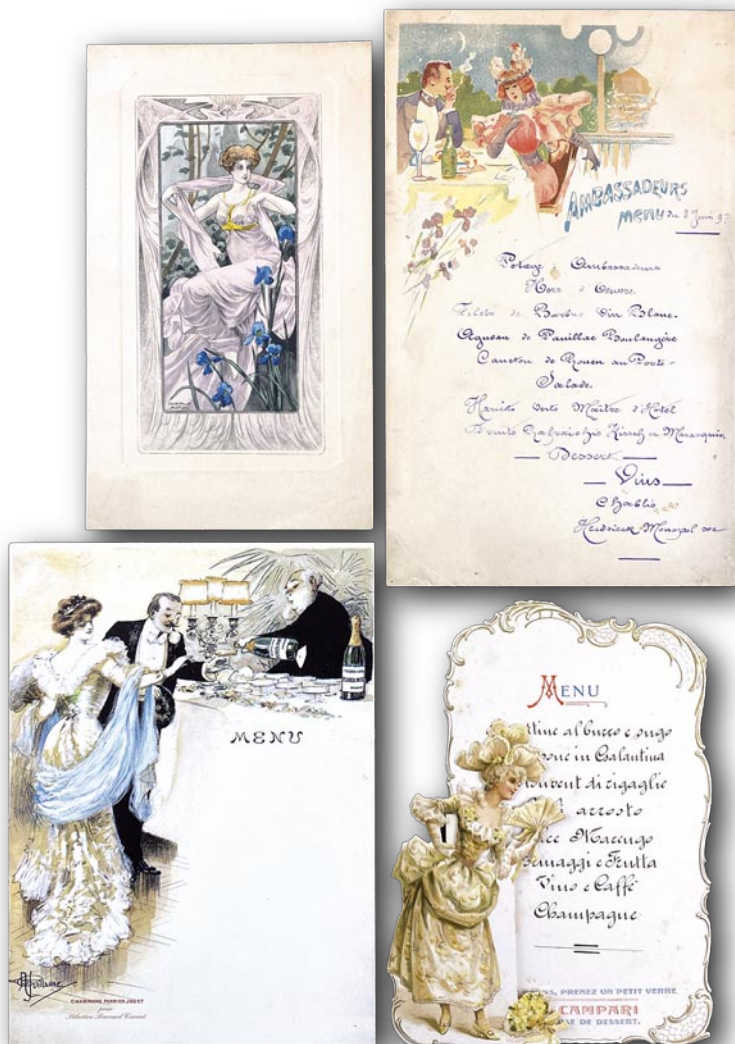 AMBASSADEURS
MENU du 2 Juin 9
Potage Ambassadeurs
Hors d'Oeuvre
Filets de Barbue Vin Blanc
Agneau de Pauillac Boulangère
Caneton de Rouen au Porto
Salade
Haricots Verts Maître d'Hôtel
Fruits Rafraichis Kirsch Marasquin
Dessert
Vins
Chablis
Heidsieck Monopol
MENU
CHAMPAGNE PERRIER-JOUET
MENU
tine al burro e sugo
in Galantina
di rigaglie
arrosto
Marengo
maggi e Frutta
Vino e Caffè
Champagne
PRENEZ UN PETIT VERRE
CAMPARI
DE DESSERT.